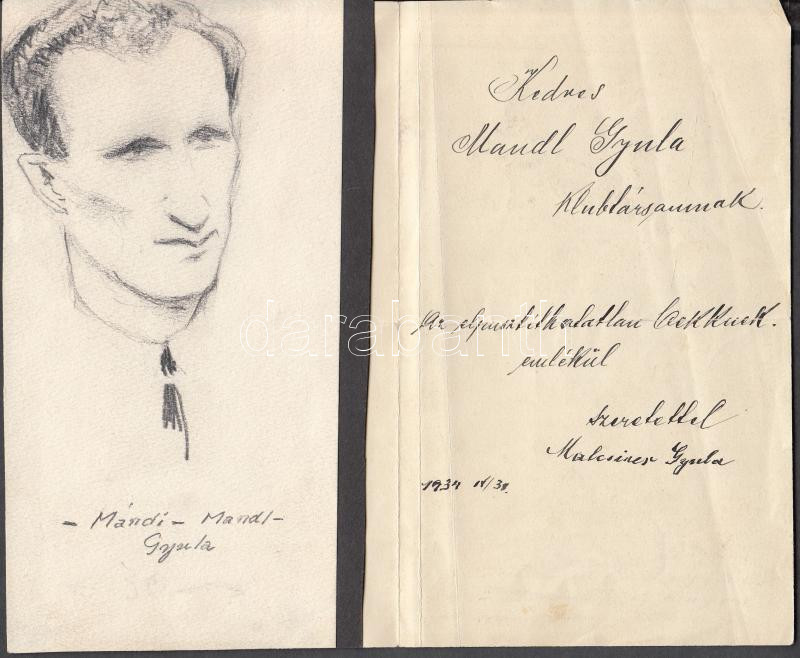 - Mándi - Mandl -
Gyula
Kedves
Mandl Gyula
Klubtársamnak.
Az elpusztithatatlan
emlékül
szeretettel
Malcsiner Gyula
1934
darabanth